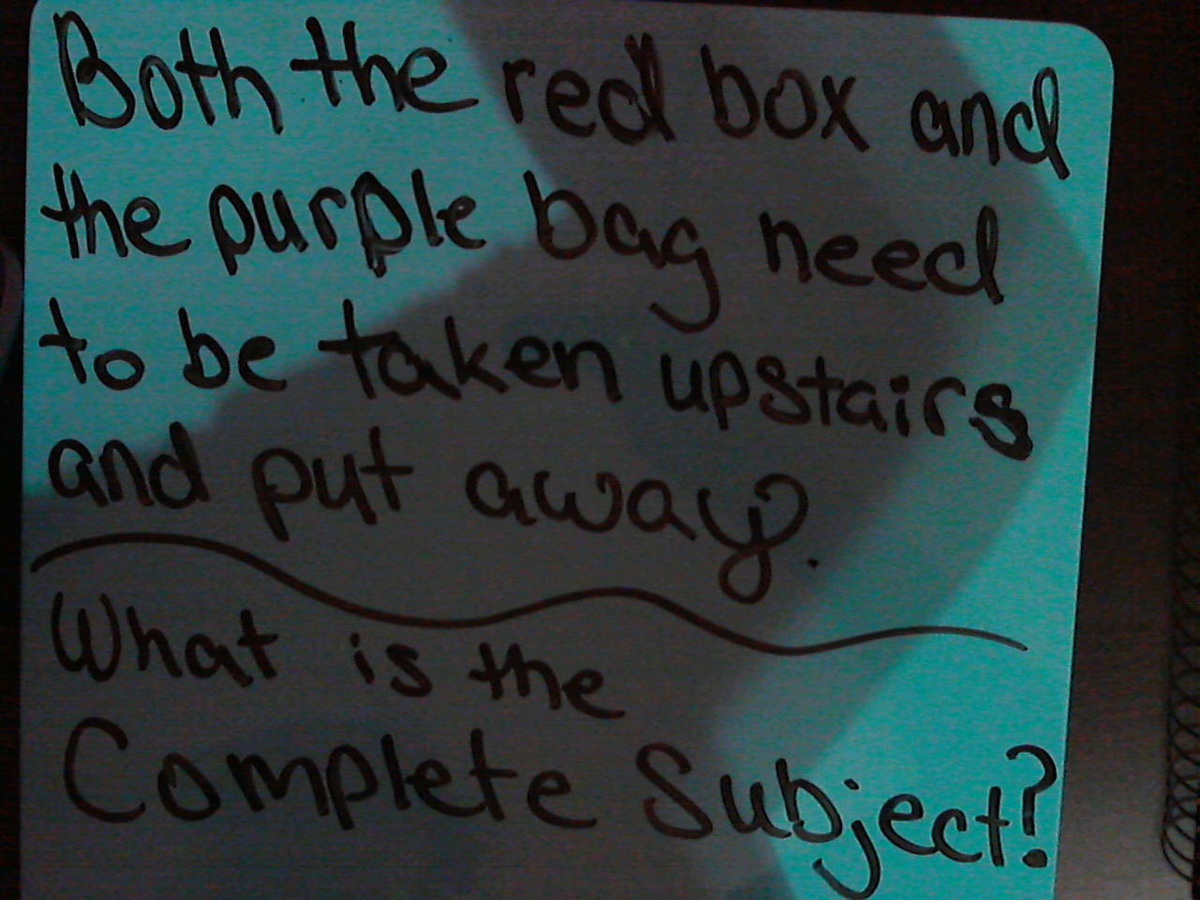 Both the red box and
the purple bag need
to be taken upstairs
and put away.
What is the
Complete Subject?